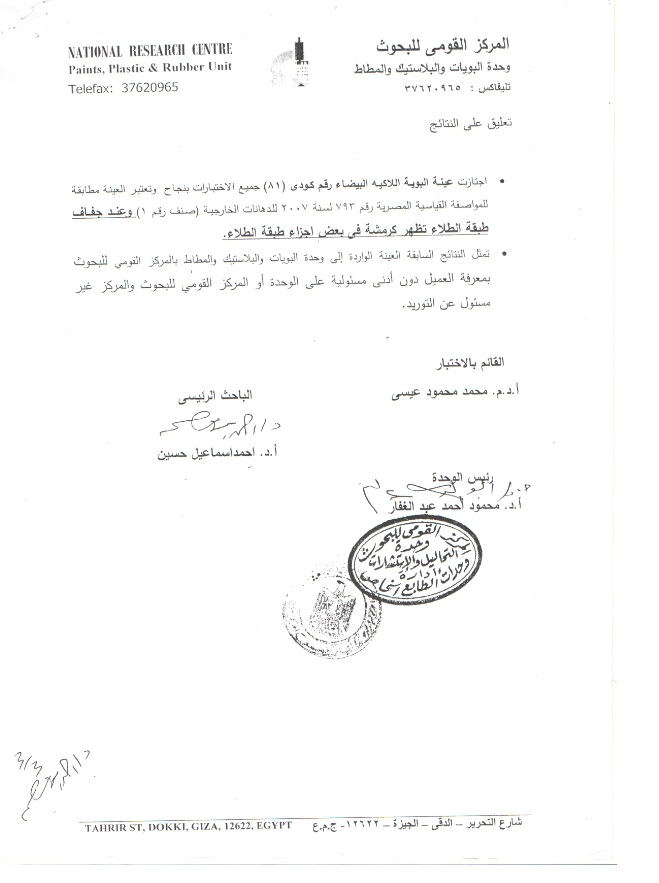 NATIONAL RESEARCH CENTRE
Paints, Plastic & Rubber Unit
Telefax: 37620965
المركز القومى للبحوث
وحدة البويات والبلاستيك والمطاط
تليفاكس : ٣٧٦٢٠٩٦٥
تعليق على النتائج
• اجتازت عينة البوية اللاكيه البيضاء رقم كودى (٨١) جميع الاختبارات بنجاح وتعتبر العينة مطابقة
للمواصفة القياسية المصرية رقم ٧٩٣ لسنة ٢٠٠٧ للدهانات الخارجية (صنف رقم ١) وعند جفاف
طبقة الطلاء تظهر كرمشة فى بعض اجزاء طبقة الطلاء.
• تمثل النتائج السابقة العينة الواردة إلى وحدة البويات والبلاستيك والمطاط بالمركز القومي للبحوث
بمعرفة العميل دون أدنى مسئولية على الوحدة أو المركز القومي للبحوث والمركز غير
مسئول عن التوريد.
القائم بالاختبار
أ.د.م. محمد محمود عيسى
الباحث الرئيسى
أ.د. احمد اسماعيل حسين
رئيس الوحدة
أ.د. محمود أحمد عبد الغفار
القومى للبحوث
وحدة
التحاليل والإستشارات
إدارة
وحدات الطابع الخاص
3/3
TAHRIR ST, DOKKI, GIZA, 12622, EGYPT
شارع التحرير – الدقى – الجيزة – ١٢٦٢٢- ج.م.ع